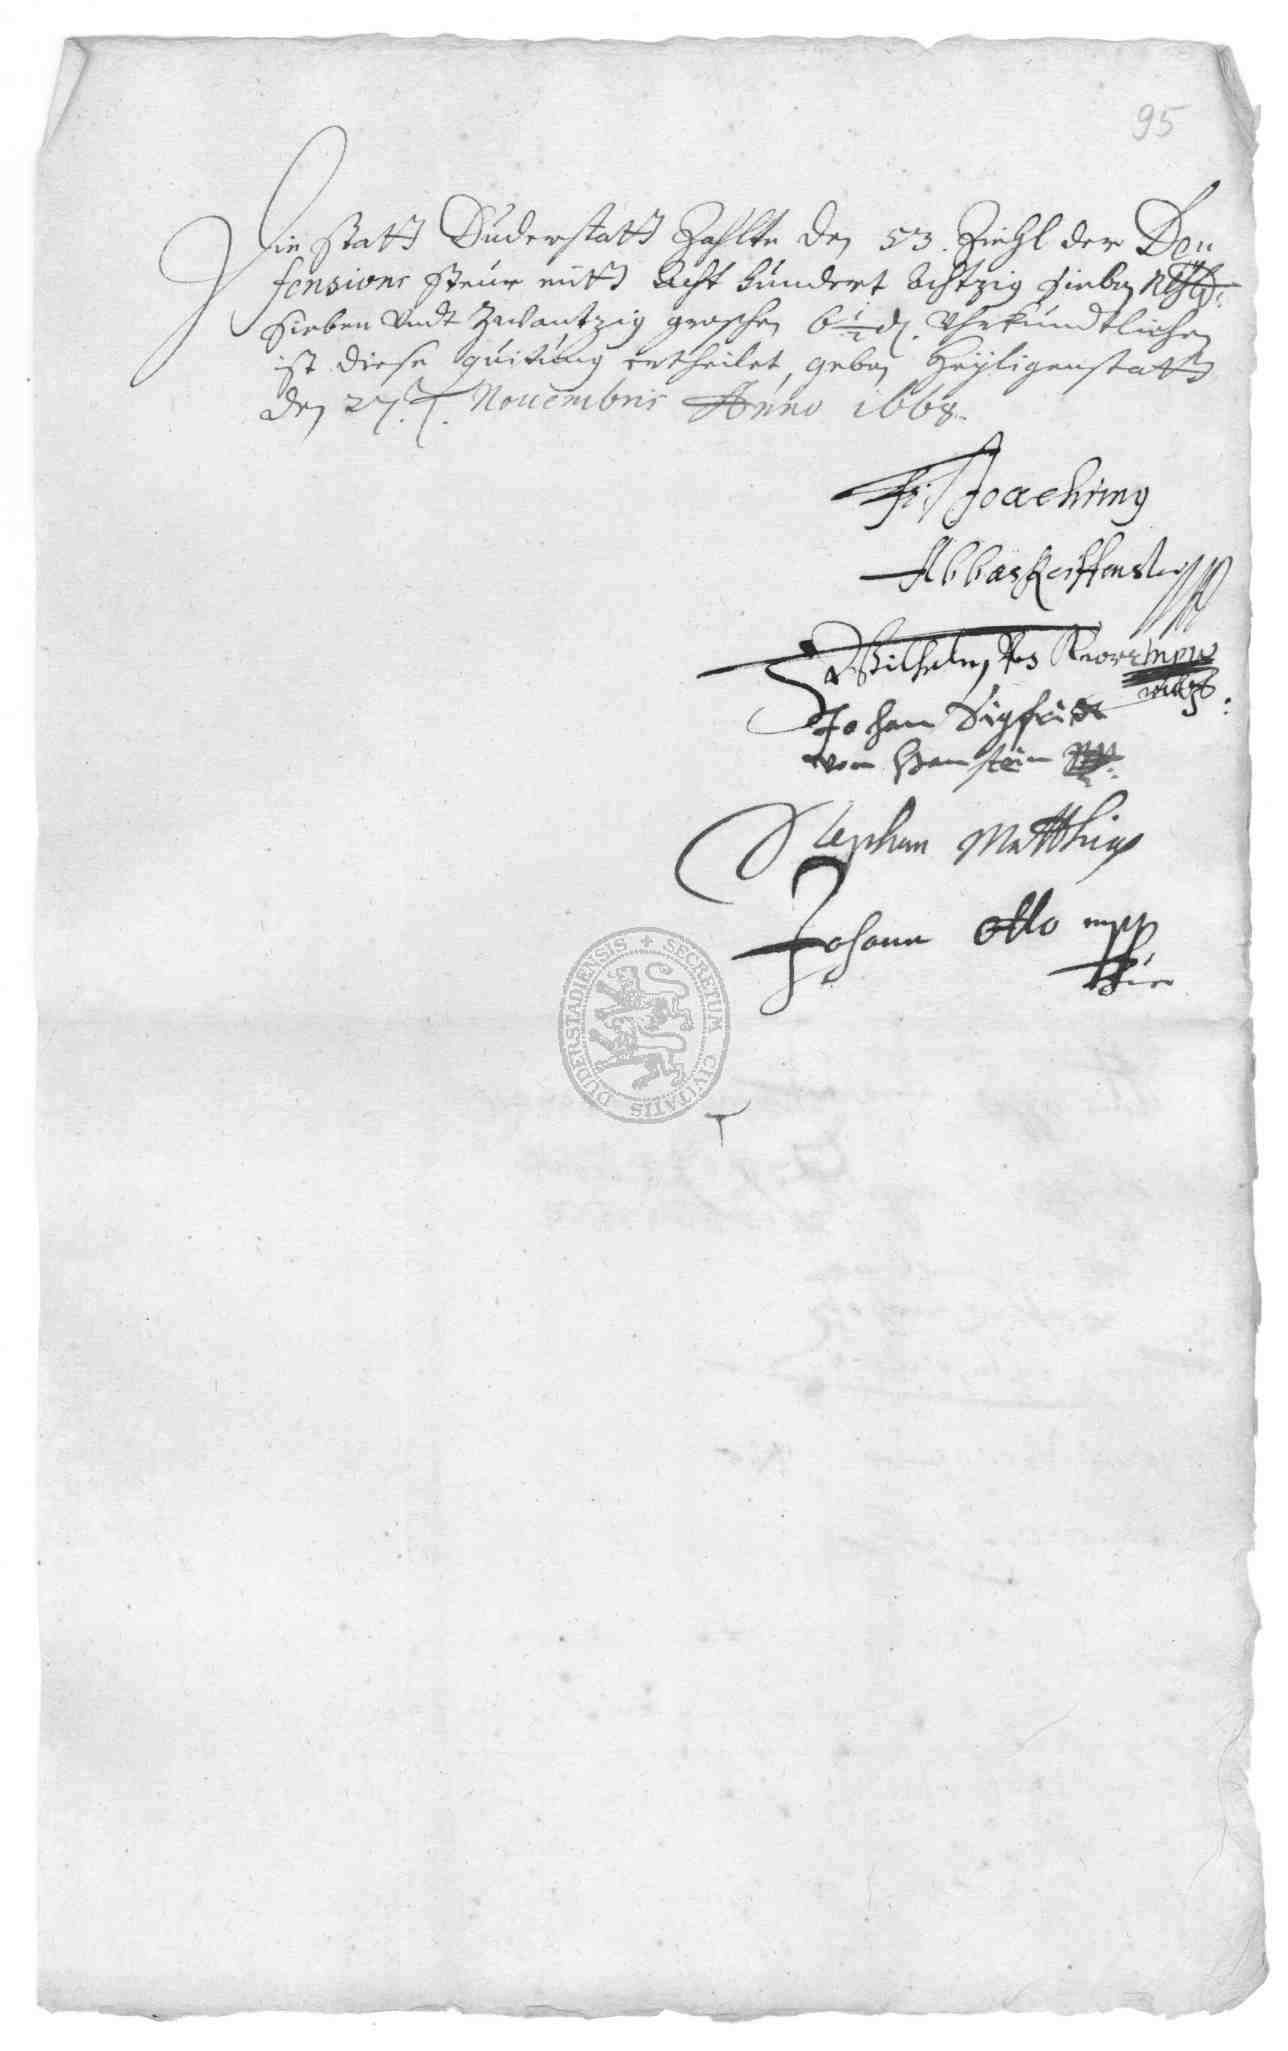 95
Die statt Duderstatt Zahlte den 53. Ziehl der De
fensions steur mitt Acht hundert Achtzig sieben Rthlr:
sieben undt Zwantzig groschen 6 1/2 d. Uhrkundtlichen
ist diese quitung ertheilet, geben Heyligenstatt
den 27. Novembris Anno 1668.
fr. Joachimus
Abbas Reiffenstein
Wilhelm Knorr mpp
Johan Sigfridt
von Hanstein
Stephan Matthias
Johann Otto mpp
SECRETUM CIVITATIS DUDERSTADIENSIS